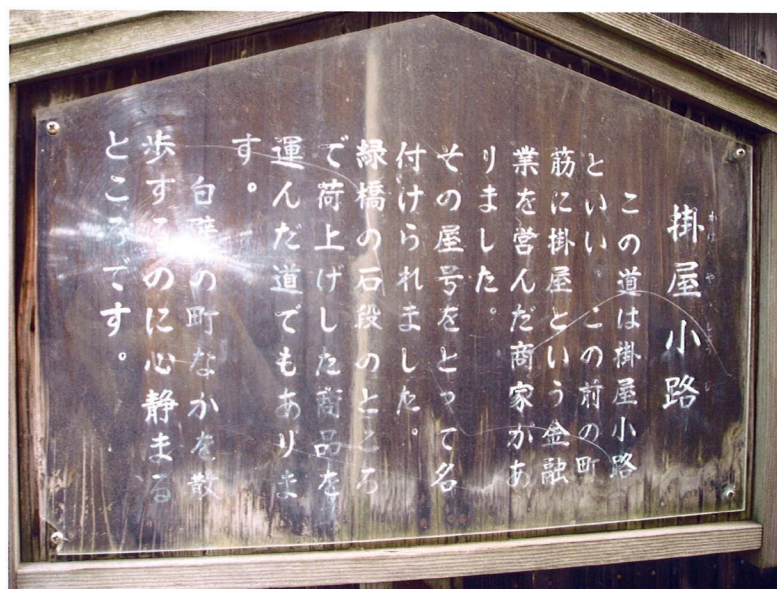 掛屋小路
この道は掛屋小路
といい、この前の町
筋に掛屋という金融
業を営んだ商家があ
りました。
その屋号をとって名
付けられました。
緑橋の石段のところ
で荷上げした商品を
運んだ道でもありま
す。
白壁の町なかを散
歩するのに心静まる
ところです。